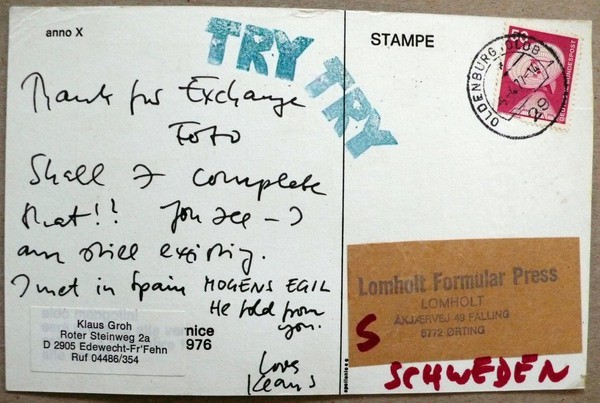 anno X
TRY TRY
STAMPE
Thank for Exchange
Foto
Shall I complete
that!! You see – I
am still existing.
I met in Spain MOGENS EGIL
He told from
you.
Love
Klaus
Klaus Groh
Roter Steinweg 2a
D 2905 Edewecht-Fr'Fehn
Ruf 04486/354
nice
1976
OLDENBURG, OLDB 1
DEUTSCHE BUNDESPOST
Lomholt Formular Press
LOMHOLT
ÅKJÆRVEJ 49 FALLING
8772 ØRTING
S
SCHWEDEN